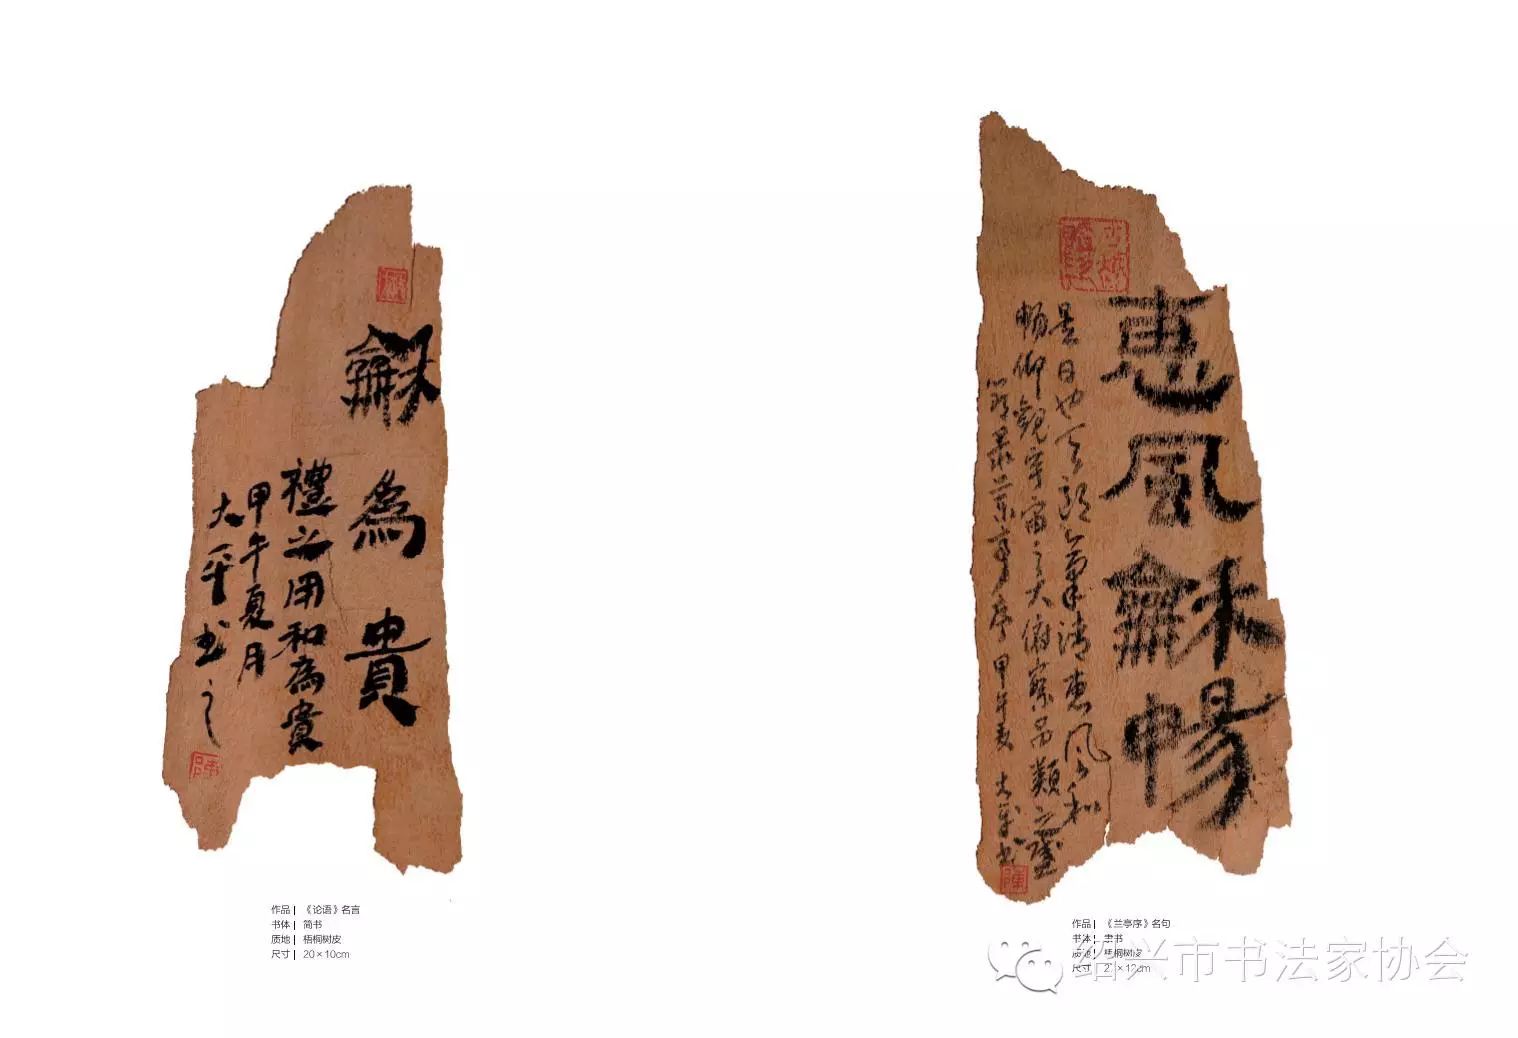 龢為貴
禮之用和為貴
甲午夏月
大平書之
陳
作品 | 《论语》名言
书体 | 简书
质地 | 梧桐树皮
尺寸 | 20×10cm
惠風龢暢
是日也天朗氣清惠風和
暢仰觀宇宙之大俯察品類之盛
節录蘭亭序 甲午夏 大平书
陳
作品 | 《兰亭序》名句
书体 | 隶书
质地 | 梧桐树皮
尺寸
×12cm
绍兴市书法家协会